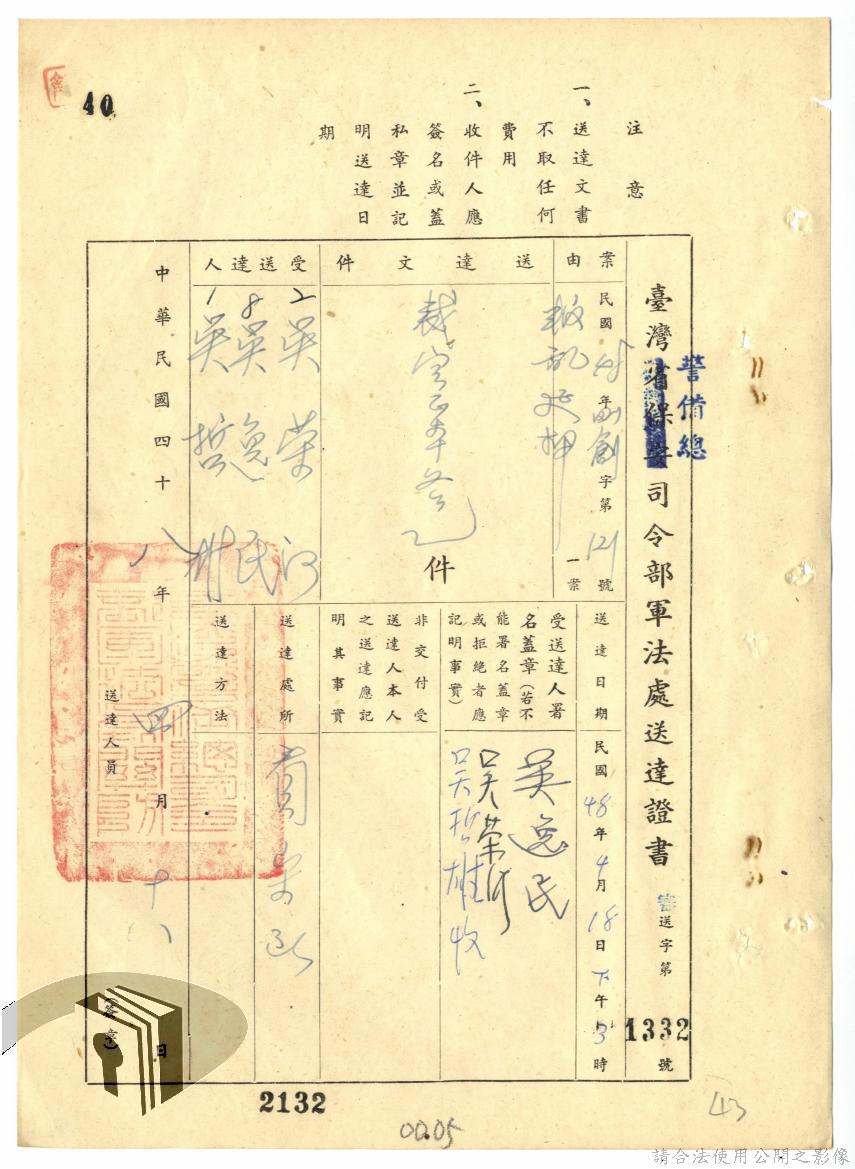 40
注意
一、送達文書
不取任何
費用
二、收件人應
簽名或蓋
私章並記
明送達日
期
臺灣省保安司令部軍法處送達證書
警備總
審送字第1332號
案由
民國48年字第121號
叛亂
一案
送達文件
裁定正本
件
受送達人
2 吳榮
吳逸民
1 吳哲
送達日期
民國48年4月18日下午3時
受送達人署
名蓋章(若不
能署名蓋章
或拒絕者應
記明事實)
吳逸民
吳榮
吳哲雄收
非交付受
送達人本人
之送達應記
明其事實
送達處所
送達方法
中華民國四十八年四月十八日
送達人員
(簽章)
2132
00.05
43
請合法使用公開之影像